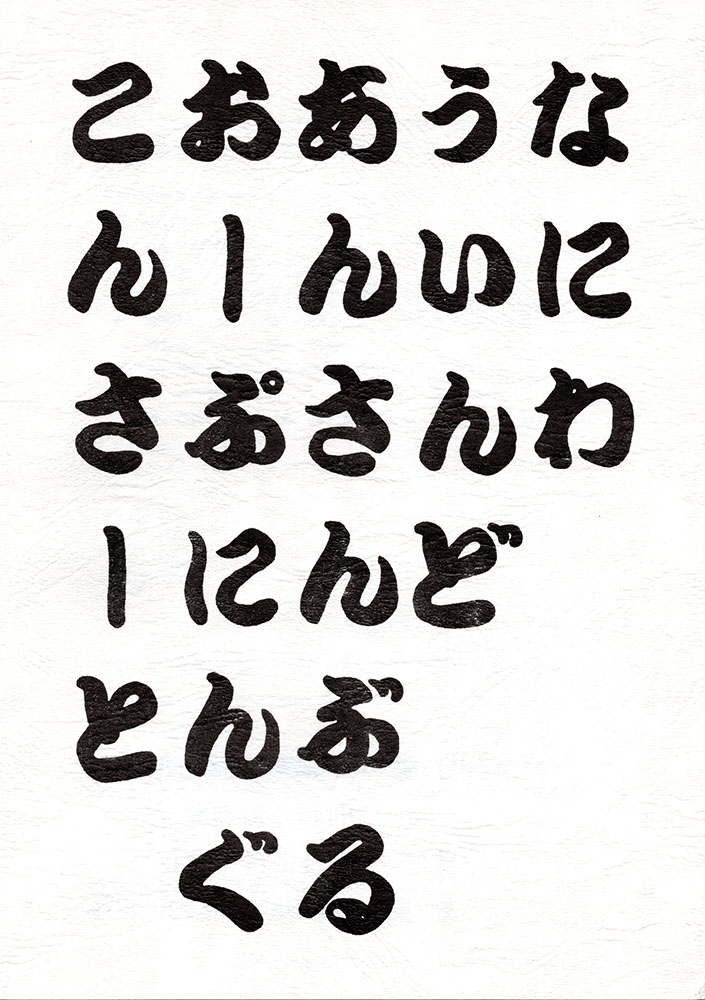 なにわ
ういんど
あんさんぶる
おーぷにんぐ
こんさーと